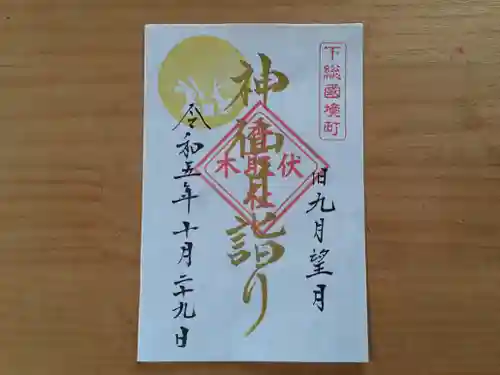 下総國境町
旧九月望月
神備月詣り
伏木
香取社
令和五年十月二十九日